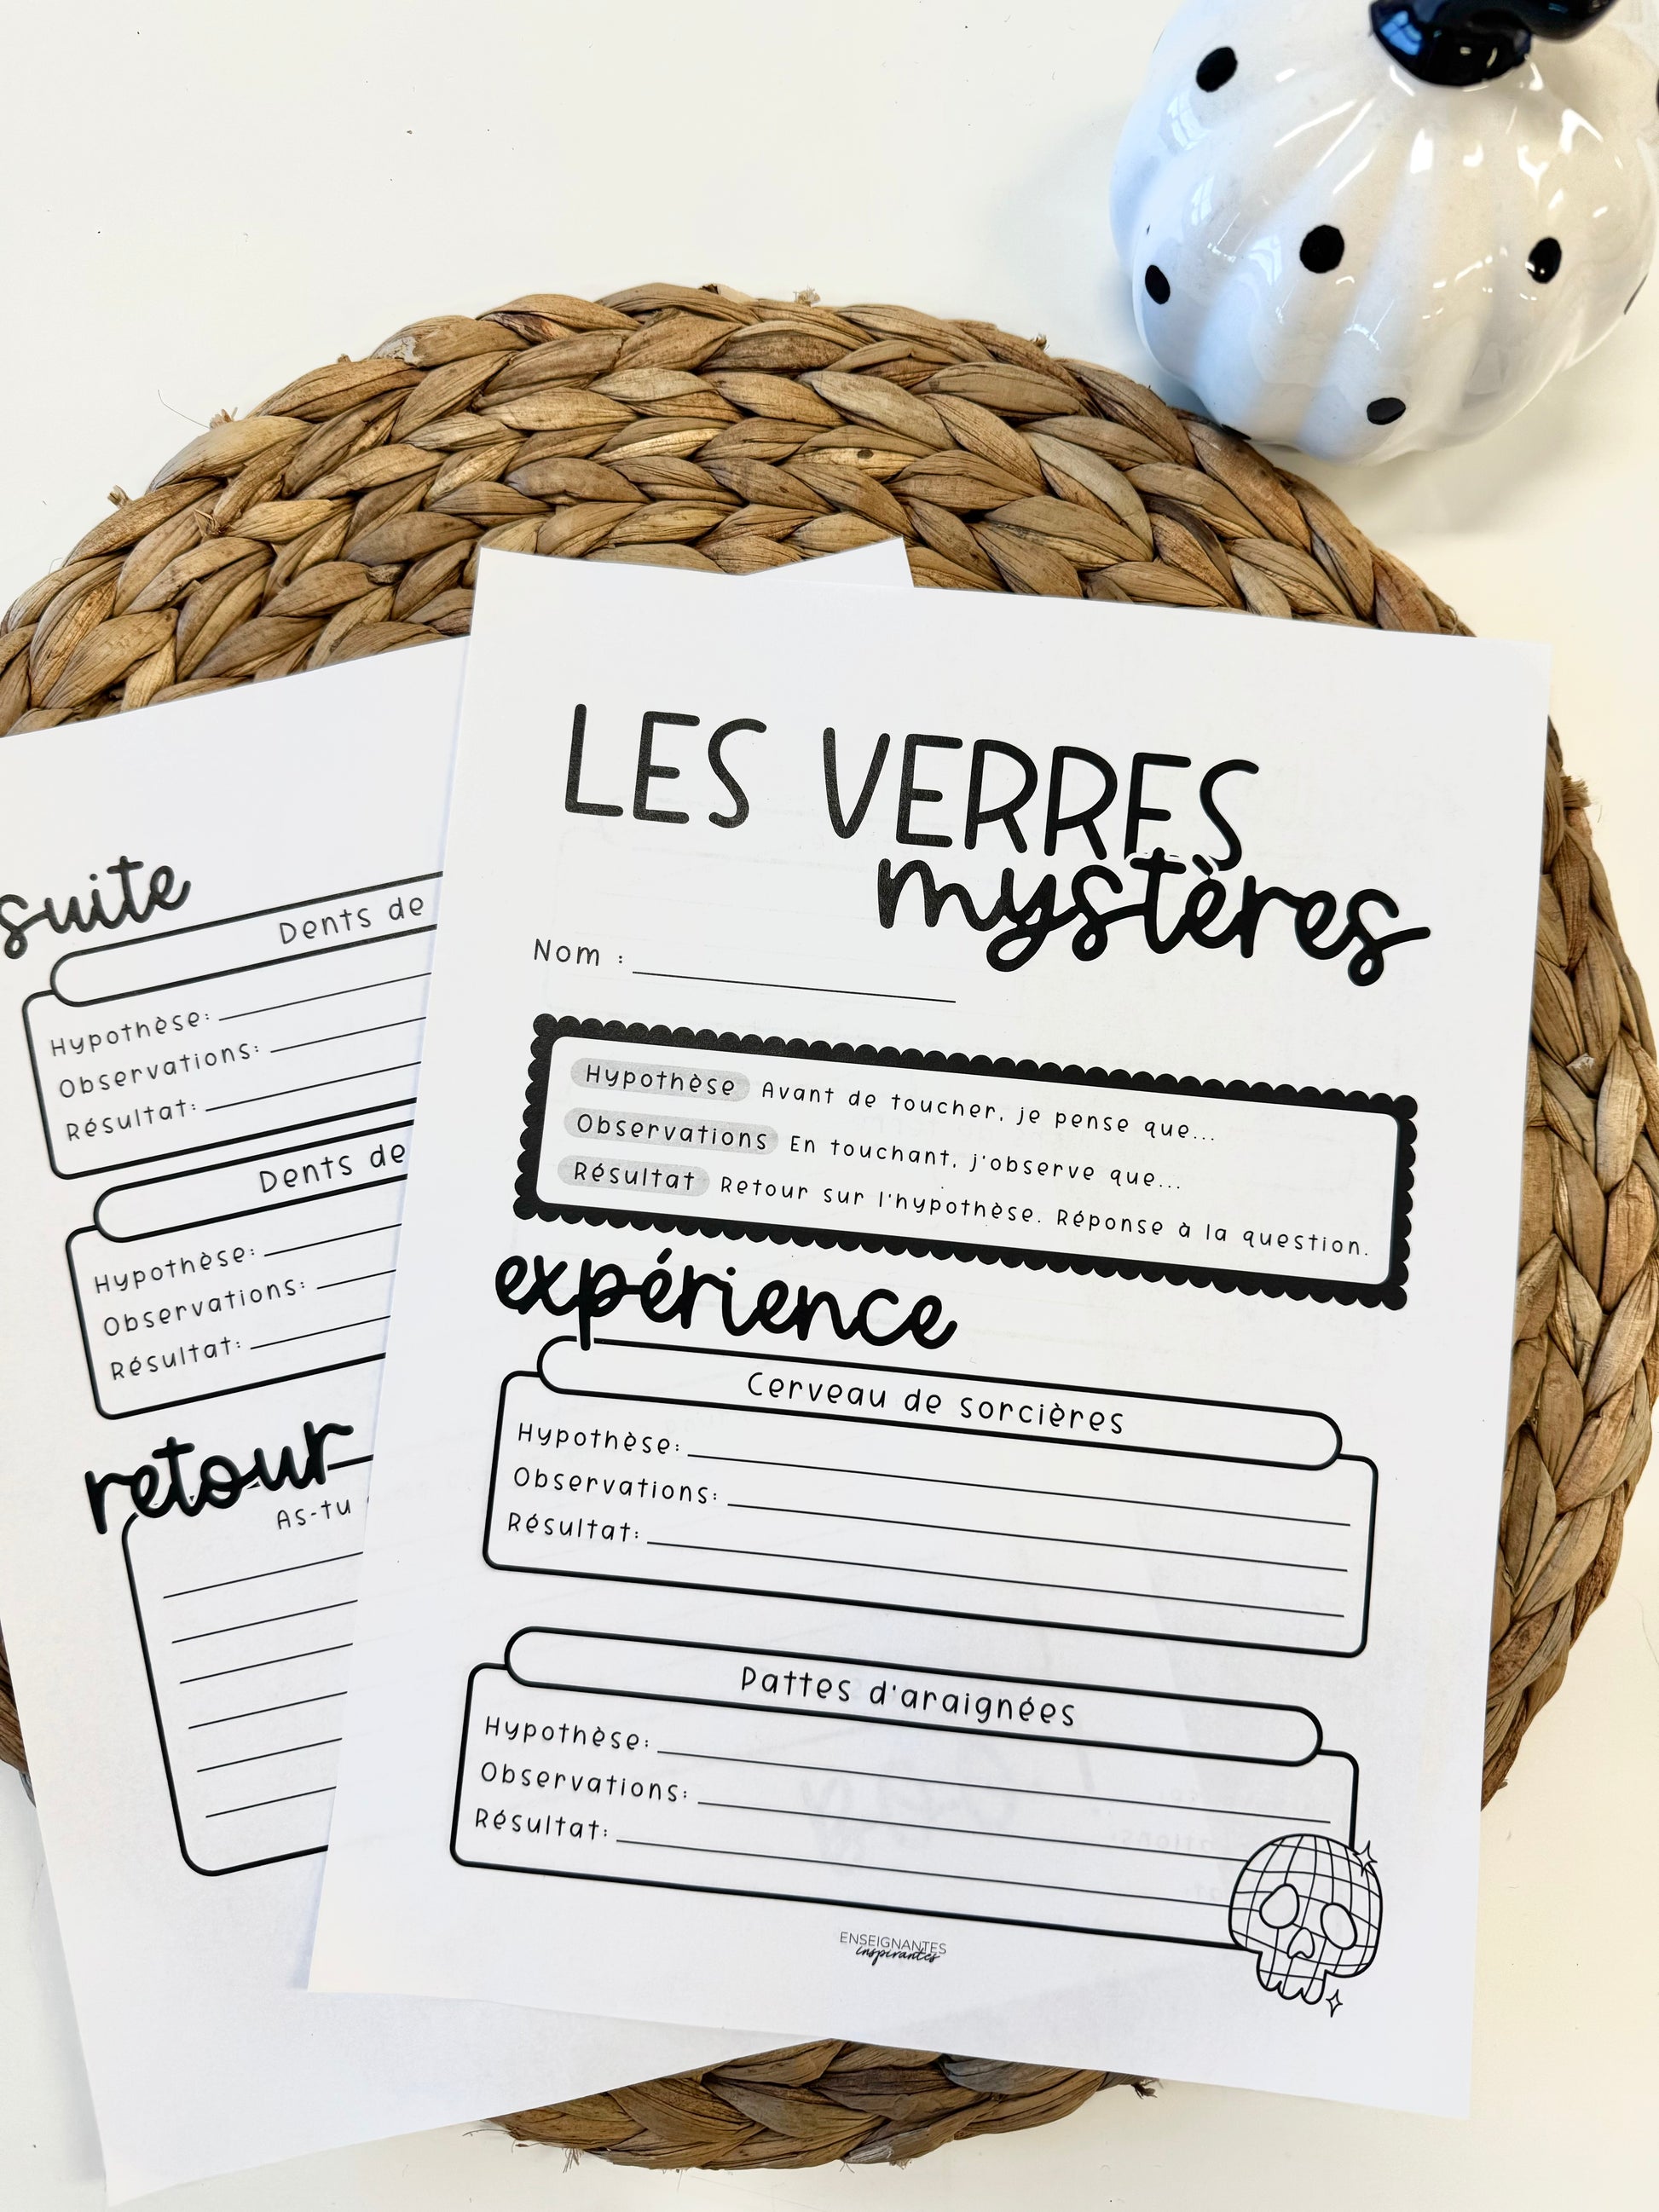 LES VERRES
mystères
Nom :
Hypothèse Avant de toucher, je pense que...
Observations En touchant, j'observe que...
Résultat Retour sur l'hypothèse. Réponse à la question.
expérience
Cerveau de sorcières
Hypothèse:
Observations:
Résultat:
Pattes d'araignées
Hypothèse:
Observations:
Résultat:
ENSEIGNANTES
inspirantes
suite
Dents de
Hypothèse:
Observations:
Résultat:
Dents de
Hypothèse:
Observations:
Résultat:
retour
As-tu